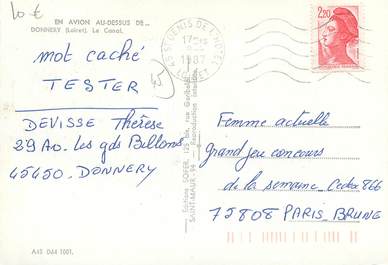 10 €
EN AVION AU-DESSUS DE...
DONNERY (Loiret). Le Canal.
mot caché
TESTER
45
DEVISSE Thérèse
39 Av. Les gds Billons
45450. DONNERY
A45 064 1001.
Editions SOFER, 125 bis, rue Garibaldi
SAINT-MAUR - 94 Reproduction interdite
45 ST DENIS DE L'HOTEL
17H
1987
LOIRET
2,20
Femme actuelle
Grand jeu concours
de la semaine Cedex 866
75808 PARIS BRUNE